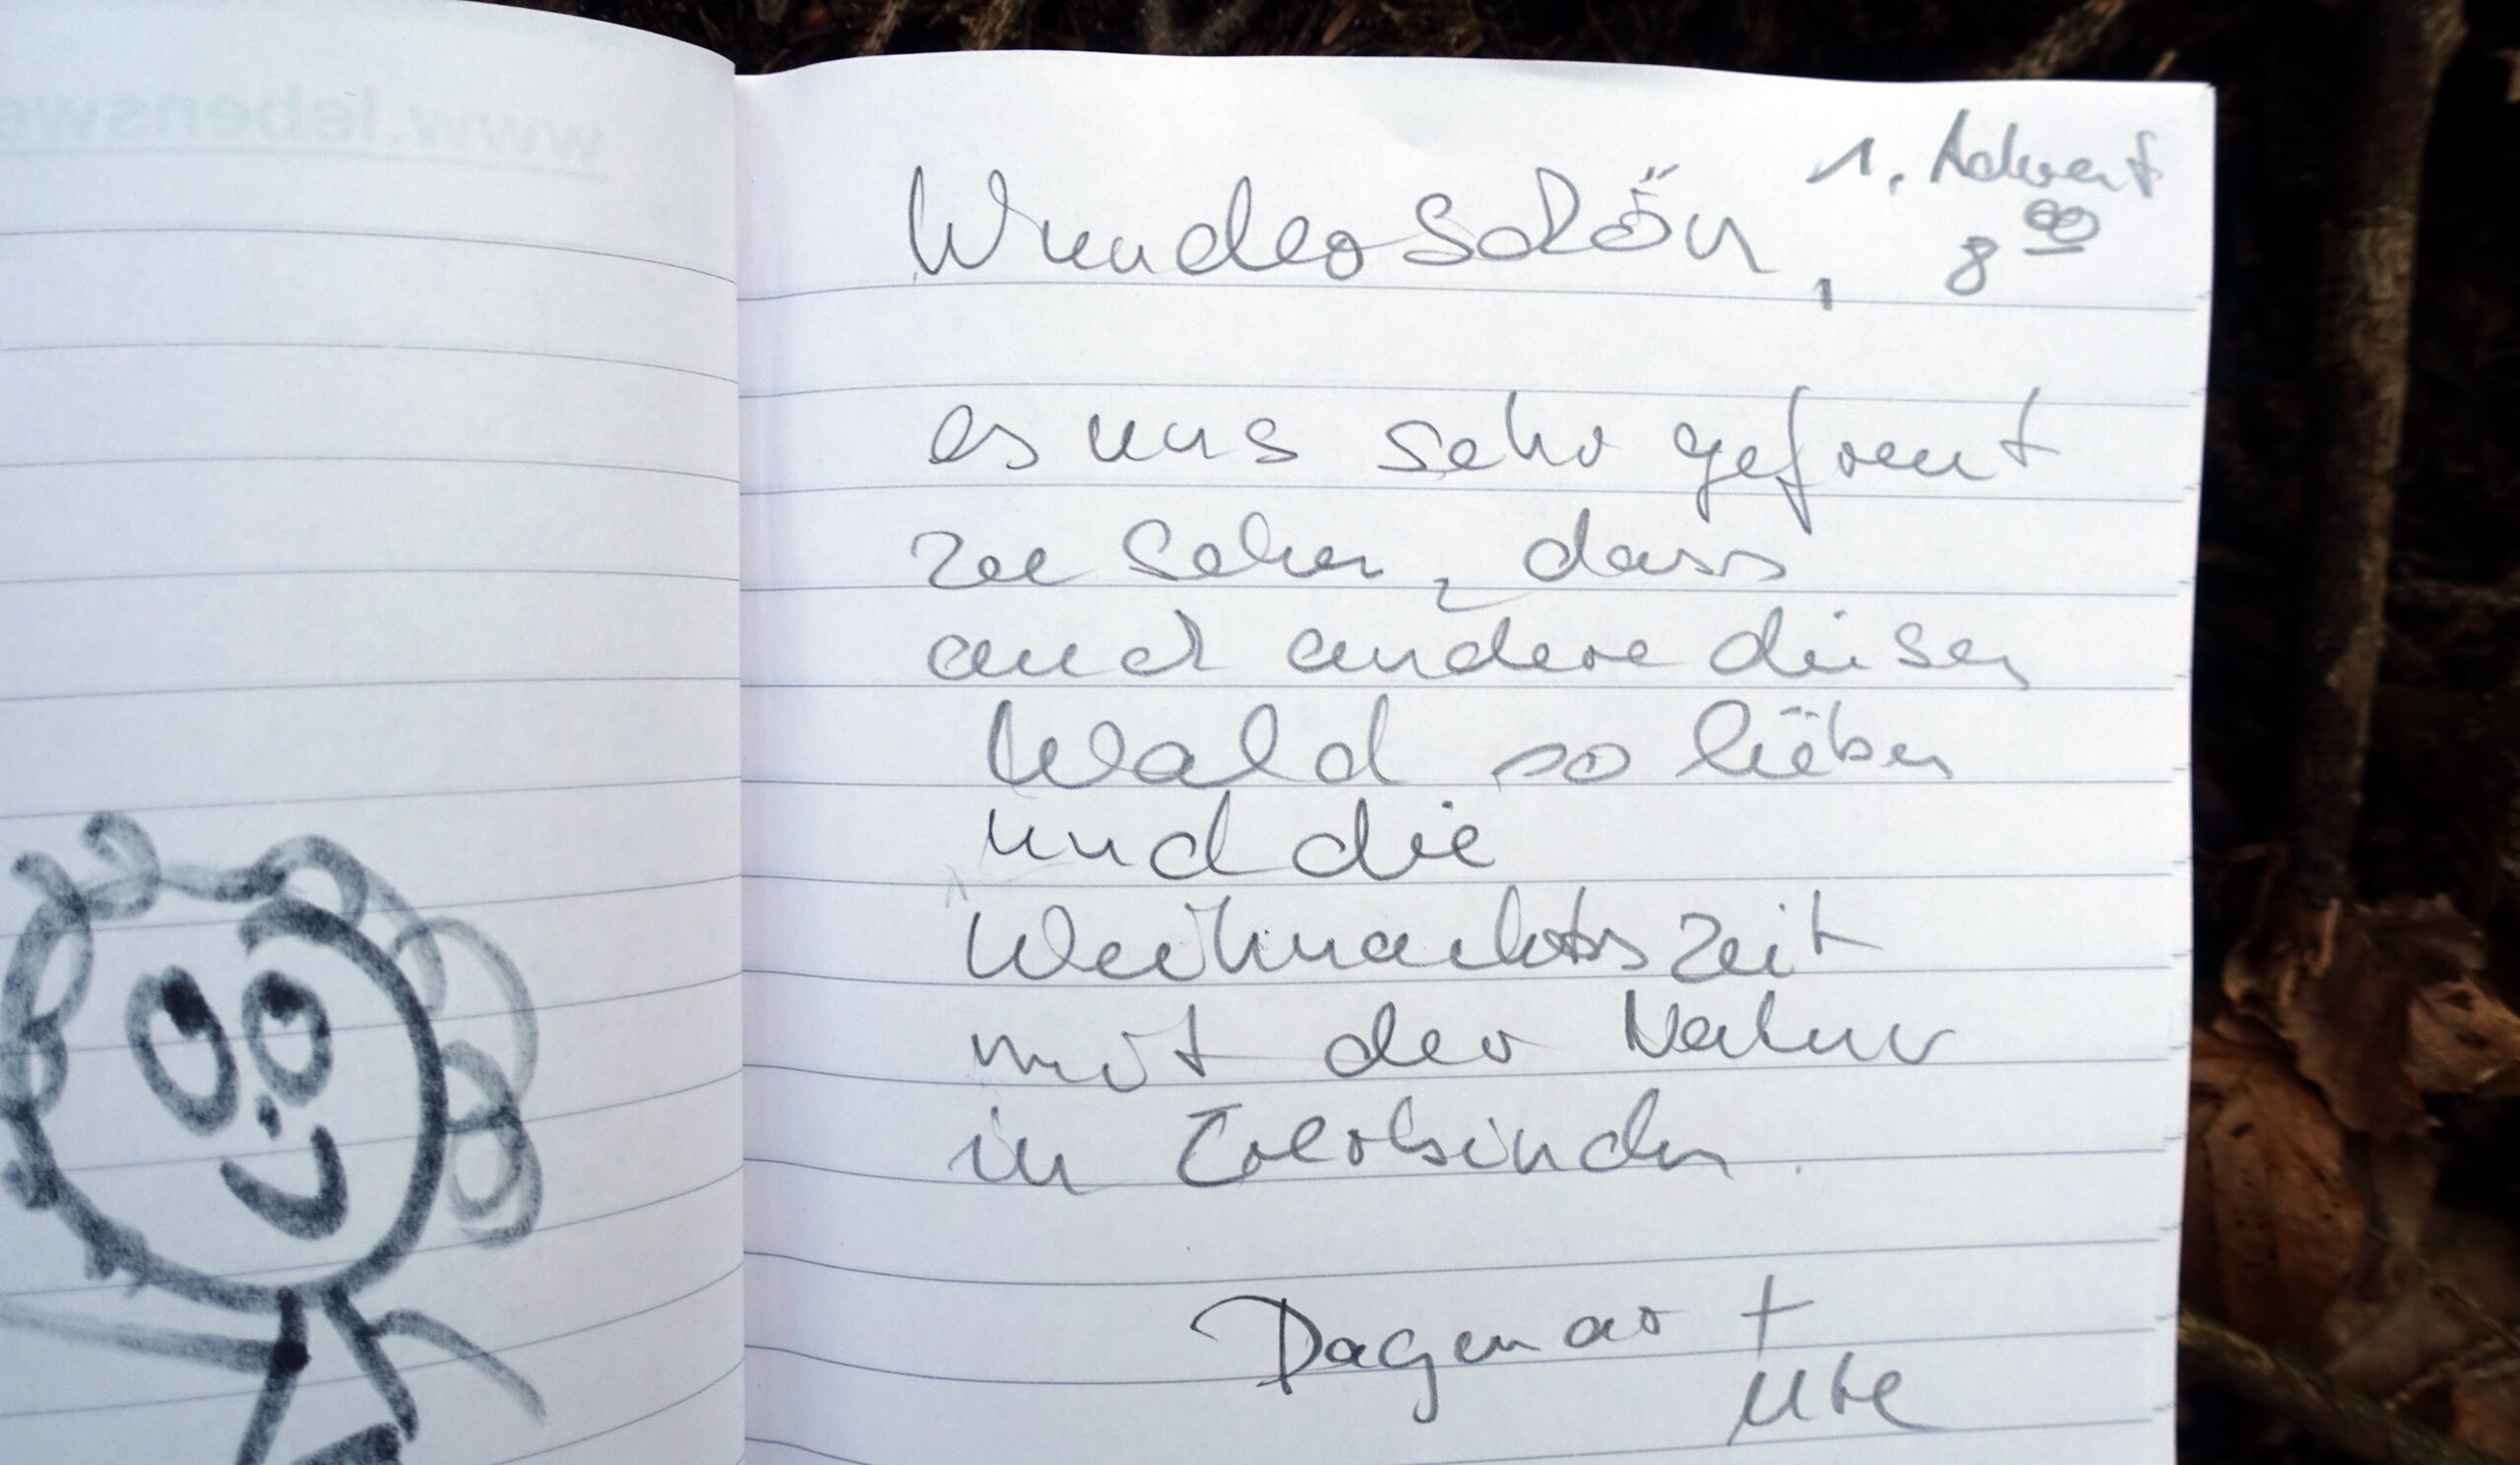 www.lebenswe
1. Advent
8 00
Wunderschön,
es uns sehr gefreut
zu sehen, dass
auch andere diesen
Wald so lieben
und die
Weihnachtszeit
mit der Natur
in
Dagmar +
Ute